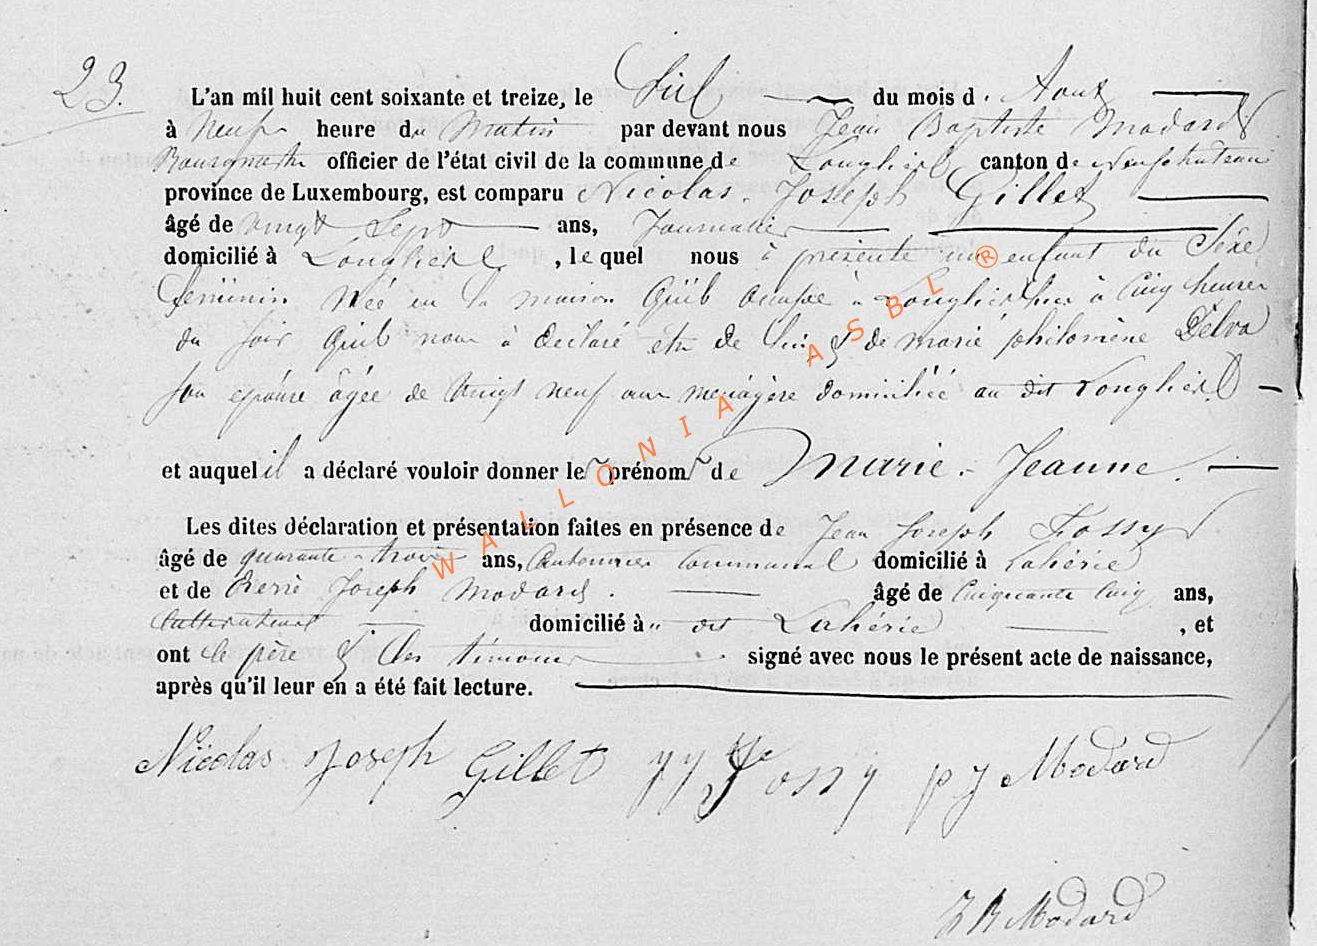 23.
L'an mil huit cent soixante et treize, le Six du mois d. Aout
à Neuf heure du Matin par devant nous Jean Baptiste Modard
Bourgmestre officier de l'état civil de la commune de Longlier canton de neufchateau
province de Luxembourg, est comparu Nicolas Joseph Gillet
âgé de vingt Sept ans, Journalier
domicilié à Longlier, le quel nous à présenté un enfant du Sexe
Feminin née en la maison Qu'il occupe à Longlier hier à Cinq heures
du soir Qu'il nous à déclaré être de lui & de marie philomène Delva
son epouse âgée de Vingt neuf ans menagère domiciliée au dit Longlier
et auquel il a déclaré vouloir donner les prénoms de Marie-Jeanne.
Les dites déclaration et présentation faites en présence de Jean Joseph Fossy
âgé de quarante-trois ans, Cantonnier Communal domicilié à Lahérie
et de Joseph Modard. âgé de Cinquante Cinq ans,
Cultivateur domicilié à u dit Lahérie, et
ont le père & les témoins signé avec nous le présent acte de naissance,
après qu'il leur en a été fait lecture.
Nicolas Joseph Gillet JJ Fossy pJ Modard
J B Modard
WALLONIA ASBL ®